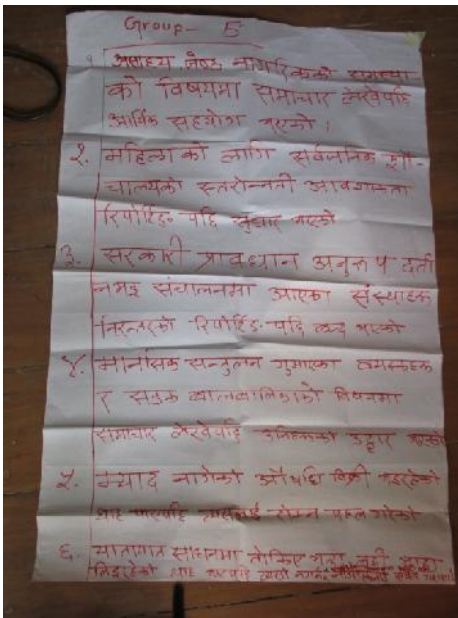 Group- E
१ असहाय जेष्ठ नागरिकको समस्या
को विषयमा समाचार लेखेपछि
आर्थिक सहयोग भएको ।
२. महिलाको लागि सर्वजनिक शौ-
चालयको स्तरोन्नती आवश्यकता
रिपोर्टिङ पछि सुधार भएको
३. सरकारी प्रावधान अनुरूप दर्ता
नभइ संचालनमा आएका संस्थाहरू
निरन्तरको रिपोर्टिङ पछि बन्द भएको
४. मानसिक सन्तुलन गुमाएका
र सडक बालबालिकाको विषयमा
समाचार लेखेपछि उनिहरूको उद्दार भएको
५. म्याद नागेको औषधि बिक्री भइरहेको
थाहा पाएपछि त्यसलाई रोक्न पहल गरेको
६. यातायात साधनमा तोकिए भन्दा बढी भाडा
लिइरहेको थाहा